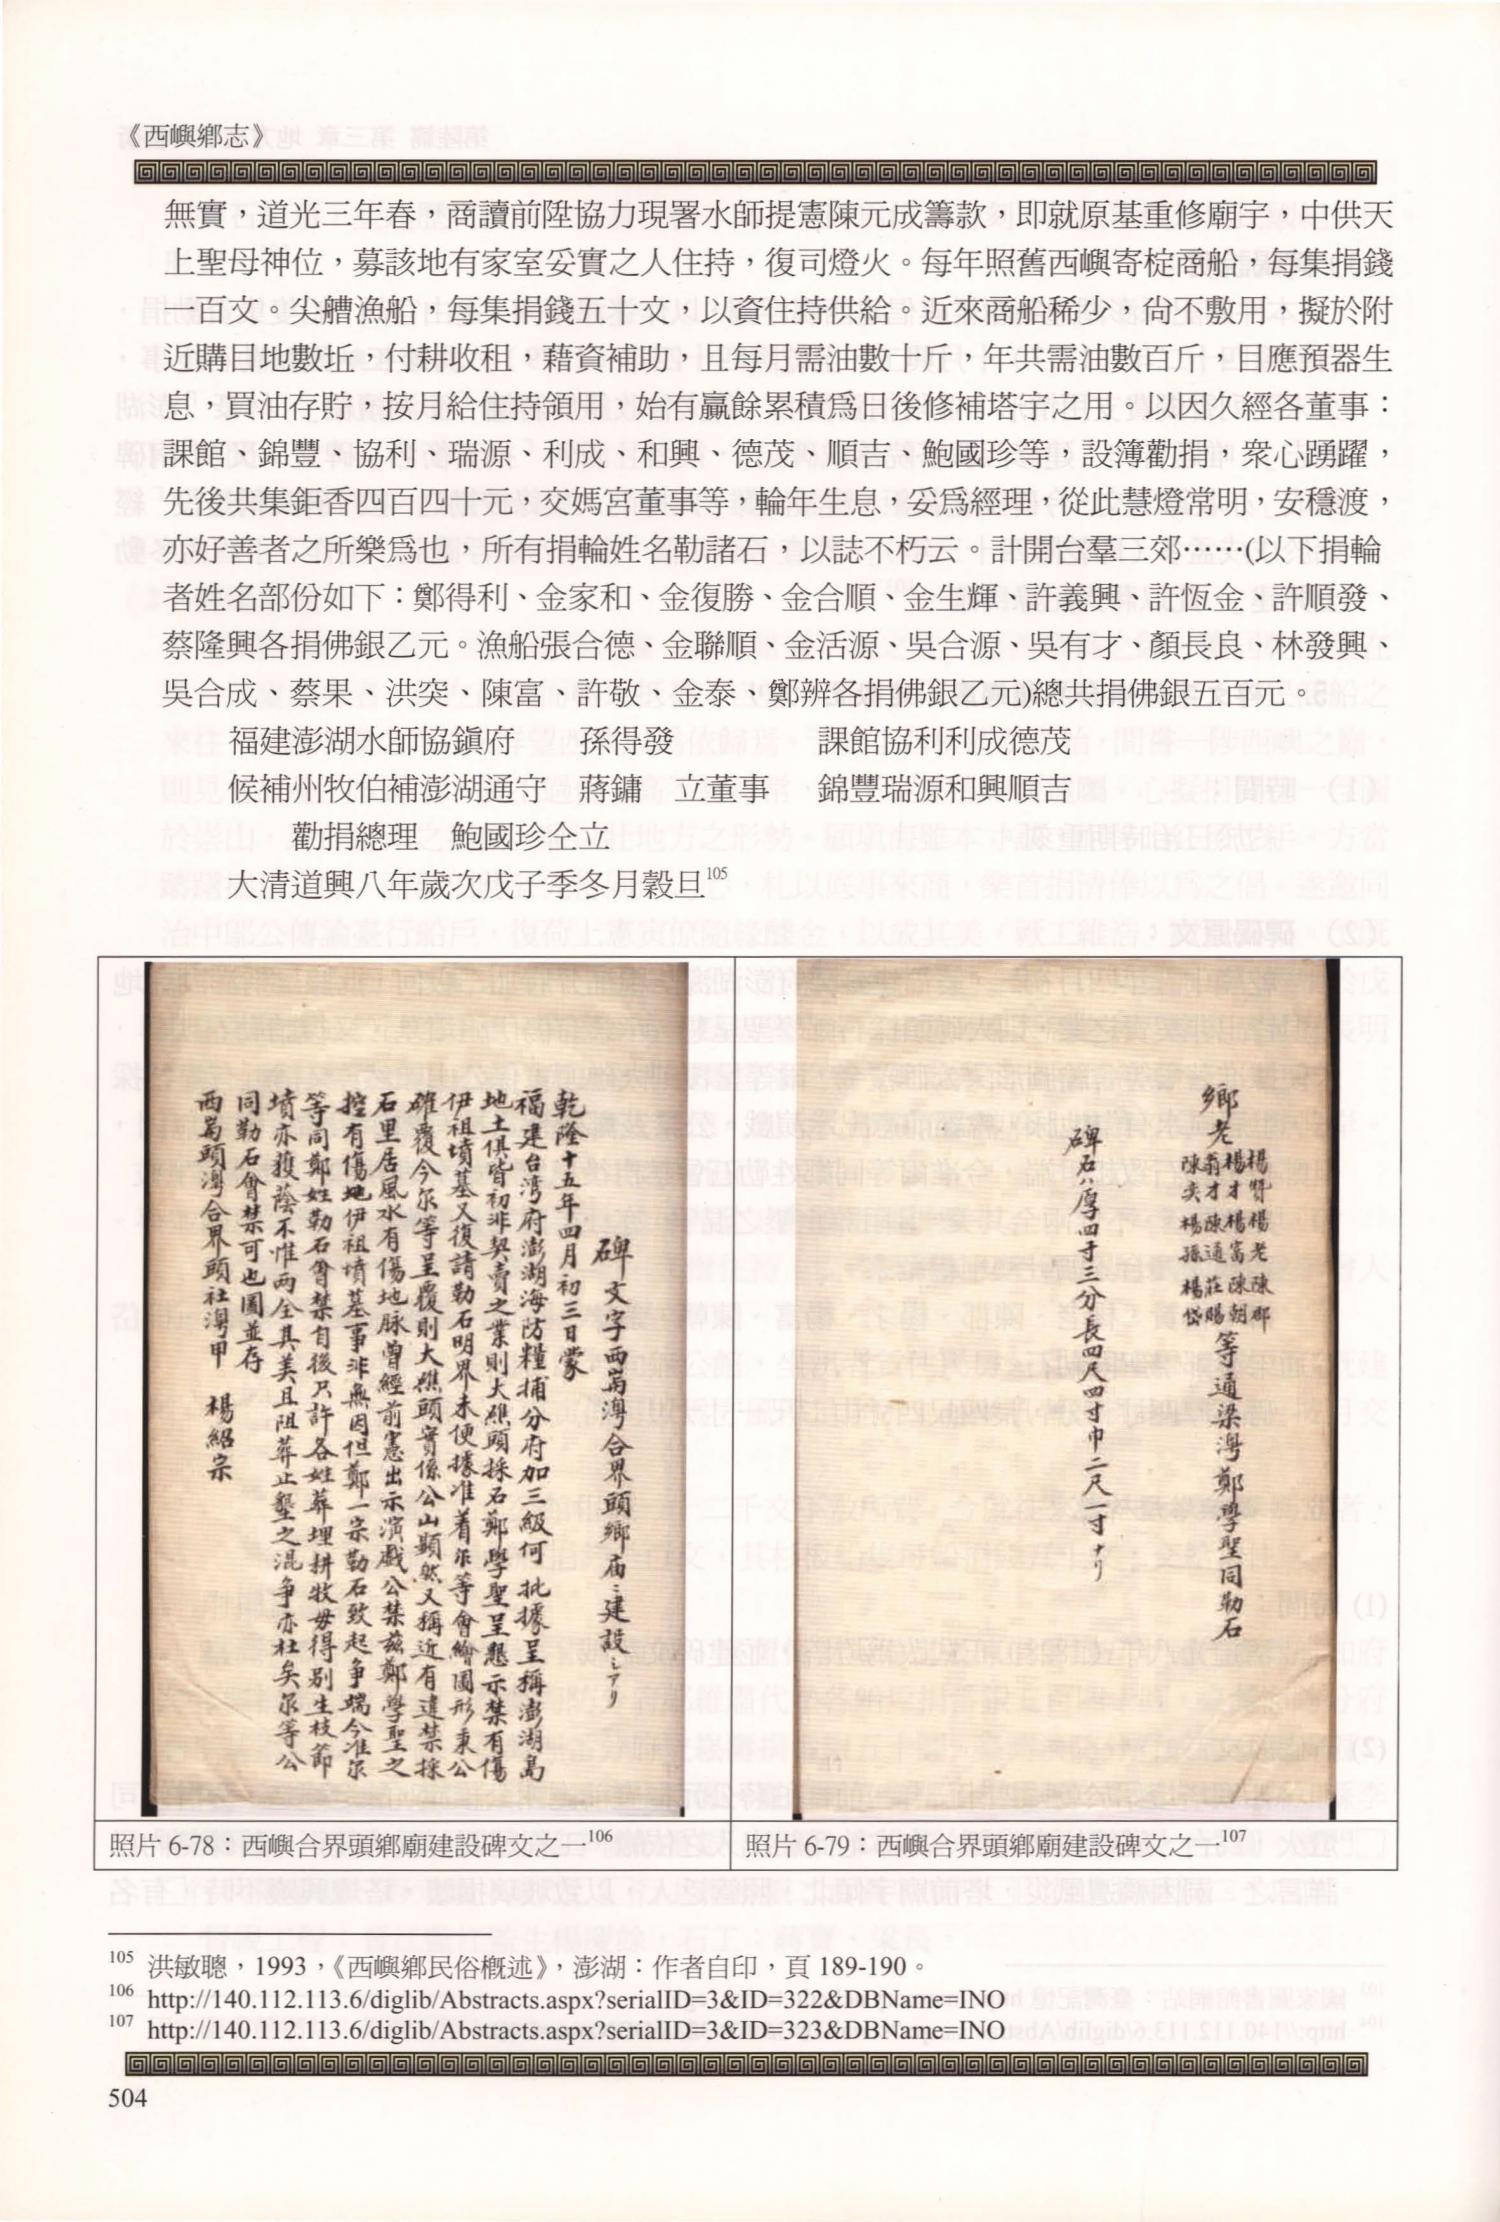 《西嶼鄉志》
無實，道光三年春，商讀前陞協力現署水師提憲陳元成籌款，即就原基重修廟宇，中供天
上聖母神位，募該地有家室妥實之人住持，復司燈火。每年照舊西嶼寄椗商船，每集捐錢
一百文。尖艚漁船，每集捐錢五十文，以資住持供給。近來商船稀少，尙不敷用，擬於附
近購目地數坵，付耕收租，藉資補助，且每月需油數十斤，年共需油數百斤，目應預器生
息，買油存貯，按月給住持領用，始有贏餘累積爲日後修補塔宇之用。以因久經各董事：
課館、錦豐、協利、瑞源、利成、和興、德茂、順吉、鮑國珍等，設簿勸捐，衆心踴躍，
先後共集鉅香四百四十元，交媽宮董事等，輪年生息，妥爲經理，從此慧燈常明，安穩渡，
亦好善者之所樂爲也，所有捐輪姓名勒諸石，以誌不朽云。計開台羣三郊⋯⋯(以下捐輪
者姓名部份如下：鄭得利、金家和、金復勝、金合順、金生輝、許義興、許恆金、許順發、
蔡隆興各捐佛銀乙元。漁船張合德、金聯順、金活源、吳合源、吳有才、顏長良、林發興、
吳合成、蔡果、洪突、陳富、許敬、金泰、鄭辨各捐佛銀乙元)總共捐佛銀五百元。
福建澎湖水師協鎭府　孫得發　課館協利利成德茂
候補州牧伯補澎湖通守　蔣鏞　立董事　錦豐瑞源和興順吉
勸捐總理　鮑國珍仝立
大清道興八年歲次戊子季冬月穀旦105
碑文字西嶌灣合界頭鄉庙ニ建設シアリ
乾隆十五年四月初三日蒙
福建台湾府澎湖海防糧捕分府加三級何批據呈稱澎湖島
地土俱皆初非契賣之業則大礁頭採石鄭學聖呈懇示禁有傷
伊祖墳墓又復請勒石明界未便據准着尔等會繪圖形秉公
確覆今尔等呈覆則大礁頭實係公山顯然又稱近有違禁採
石里居風水有傷地脉曾經前憲出示演戲公禁茲鄭學聖之
控有傷地伊祖墳墓事非無因但鄭一宗勒石致起争端今准尔
等同鄭姓勒石會禁自後只許各姓葬埋耕牧毋得別生枝節
墳亦獲蔭不惟兩全其美且阻葬止墾之混争亦杜矣尔等公
同勒石會禁可也圖並存
西嶌頭灣合界頭社灣甲　楊紹宗
鄉老
楊贊楊老陳郡
楊才楊富陳朝
翁才陳通莊賜
陳奕楊孫楊岱
等通梁灣鄭學聖同勒石
碑石ハ厚四寸三分長四尺四寸巾二尺一寸ナリ
照片 6-78：西嶼合界頭鄉廟建設碑文之一106
照片 6-79：西嶼合界頭鄉廟建設碑文之一107
105 洪敏聰，1993，《西嶼鄉民俗概述》，澎湖：作者自印，頁 189-190。
106 http://140.112.113.6/diglib/Abstracts.aspx?serialID=3&ID=322&DBName=INO
107 http://140.112.113.6/diglib/Abstracts.aspx?serialID=3&ID=323&DBName=INO
504